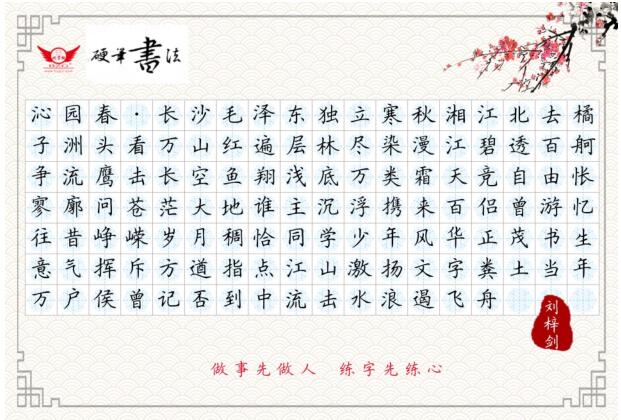 硬笔書法
沁园春·长沙毛泽东独立寒秋湘江北去橘
子洲头看万山红遍层林尽染漫江碧透百舸
争流鹰击长空鱼翔浅底万类霜天竞自由怅
寥廓问苍茫大地谁主沉浮携来百侣曾游忆
往昔峥嵘岁月稠恰同学少年风华正茂书生
意气挥斥方道指点江山激扬文字粪土当年
万户侯曾记否到中流击水浪遏飞舟
刘梓剑
做事先做人 练字先练心